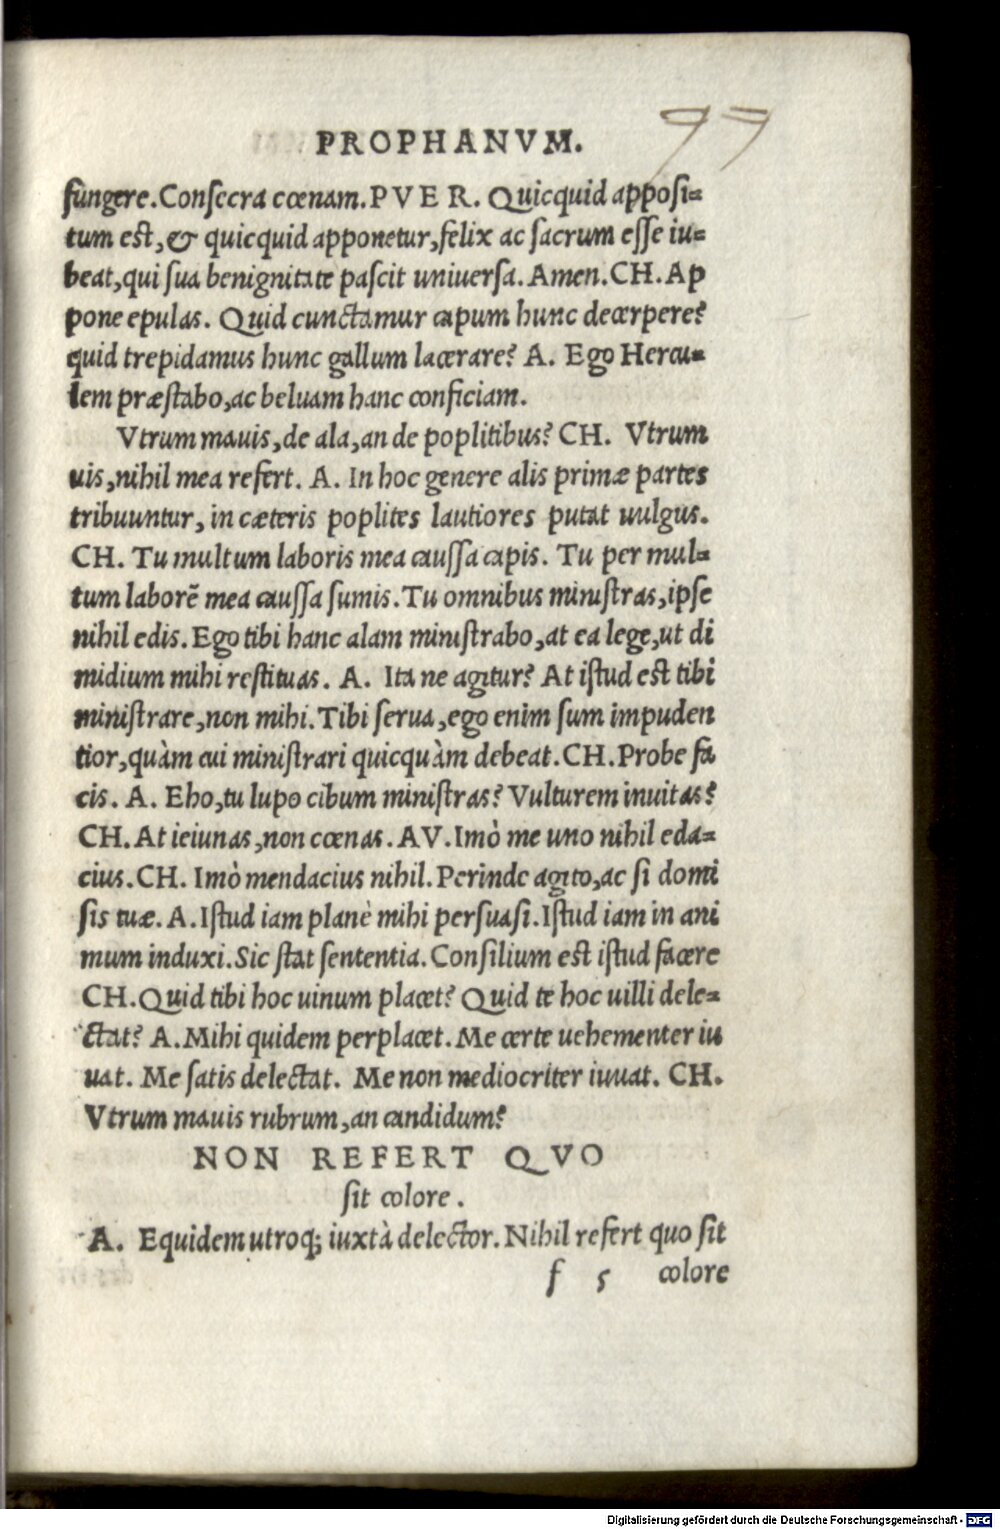 97
PROPHANVM.
fungere. Consecra cœnam. PVER. Quicquid apposi-
tum est, & quicquid apponetur, felix ac sacrum esse iu-
beat, qui sua benignitate pascit uniuersa. Amen. CH. Ap
pone epulas. Quid cunctamur capum hunc decerpere?
quid trepidamus hunc gallum lacerare? A. Ego Hercu-
lem præstabo, ac beluam hanc conficiam.
Vtrum mauis, de ala, an de poplitibus? CH. Vtrum
uis, nihil mea refert. A. In hoc genere alis primæ partes
tribuuntur, in cæteris poplites lautiores putat uulgus.
CH. Tu multum laboris mea caussa capis. Tu per mul-
tum laborẽ mea caussa sumis. Tu omnibus ministras, ipse
nihil edis. Ego tibi hanc alam ministrabo, at ea lege, ut di
midium mihi restituas. A. Ita ne agitur? At istud est tibi
ministrare, non mihi. Tibi serua, ego enim sum impuden
tior, quàm cui ministrari quicquàm debeat. CH. Probe fa
cis. A. Eho, tu lupo cibum ministras? Vulturem inuitas?
CH. At ieiunas, non cœnas. AV. Imò me uno nihil eda-
cius. CH. Imò mendacius nihil. Perinde agito, ac si domi
sis tuæ. A. Istud iam planè mihi persuasi. Istud iam in ani
mum induxi. Sic stat sententia. Consilium est istud facere
CH. Quid tibi hoc uinum placet? Quid te hoc uilli dele-
ctat? A. Mihi quidem perplacet. Me certe uehementer iu
uat. Me satis delectat. Me non mediocriter iuuat. CH.
Vtrum mauis rubrum, an candidum?
NON REFERT QVO
sit colore.
A. Equidem utroq; iuxtà delector. Nihil refert quo sit
f 5 colore
Digitalisierung gefördert durch die Deutsche Forschungsgemeinschaft - DFG